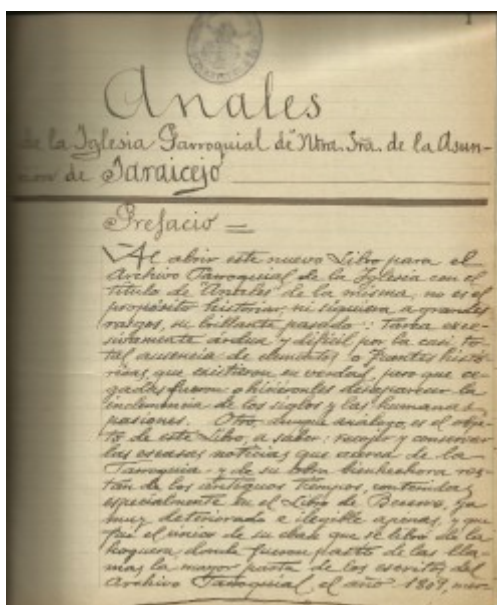 1
Anales
de la Iglesia Parroquial de Ntra. Sra. de la Asun-
cion de Jaraicejo
Prefacio =
Al abrir este nuevo Libro para el
Archivo Parroquial de la Iglesia con el
titulo de "Anales" de la misma, no es el
propósito historiar, ni siquiera a grandes
rasgos, su brillante pasado: tarea exce-
sivamente ardua y difícil por la casi to-
tal ausencia de elementos o fuentes histó-
ricas, que existieron en verdad, pero que ce-
gadas fueron o hiciéronles desaparecer la
inclemencia de los siglos y las humanas
pasiones. Otro, aunque análogo, es el obje-
to de este Libro, a saber: recoger y conservar
las escasas noticias que acerca de la
Parroquia y de su obra bienhechora res-
tan de los antiguos tiempos, contenidas
especialmente en el Libro de Becerro, ya
muy deteriorado e ilegible apenas, y que
fué el unico de su clase que se libró de la
hoguera, donde fueron pasto de las lla-
mas la mayor parte de los escritos del
Archivo Parroquial, el año 1809, mer-